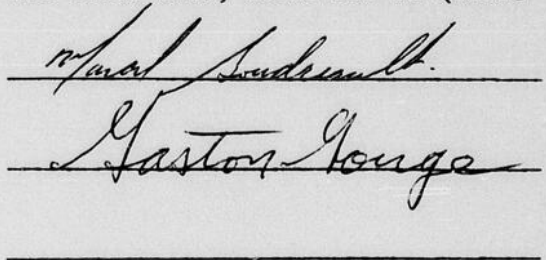 Marcel Goudreault.
Gaston Gouge